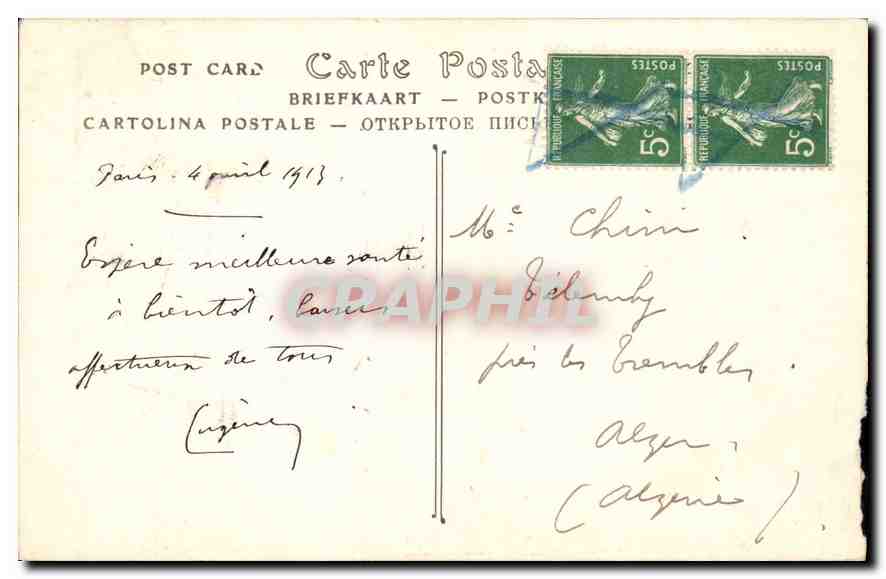 POST CARD Carte Posta
BRIEFKAART — POSTK
CARTOLINA POSTALE — ОТКРЫТОЕ ПИСЬ
REPUBLIQUE FRANÇAISE POSTES 5c
REPUBLIQUE FRANÇAISE POSTES 5c
Paris. 4 avril 1913.
Espère meilleure santé
à bientôt, baisers
affectueux de tous
Eugène
CPAPHIL
Me Chiri.
Télemly
près les Trembles.
Alger,
(Algérie)